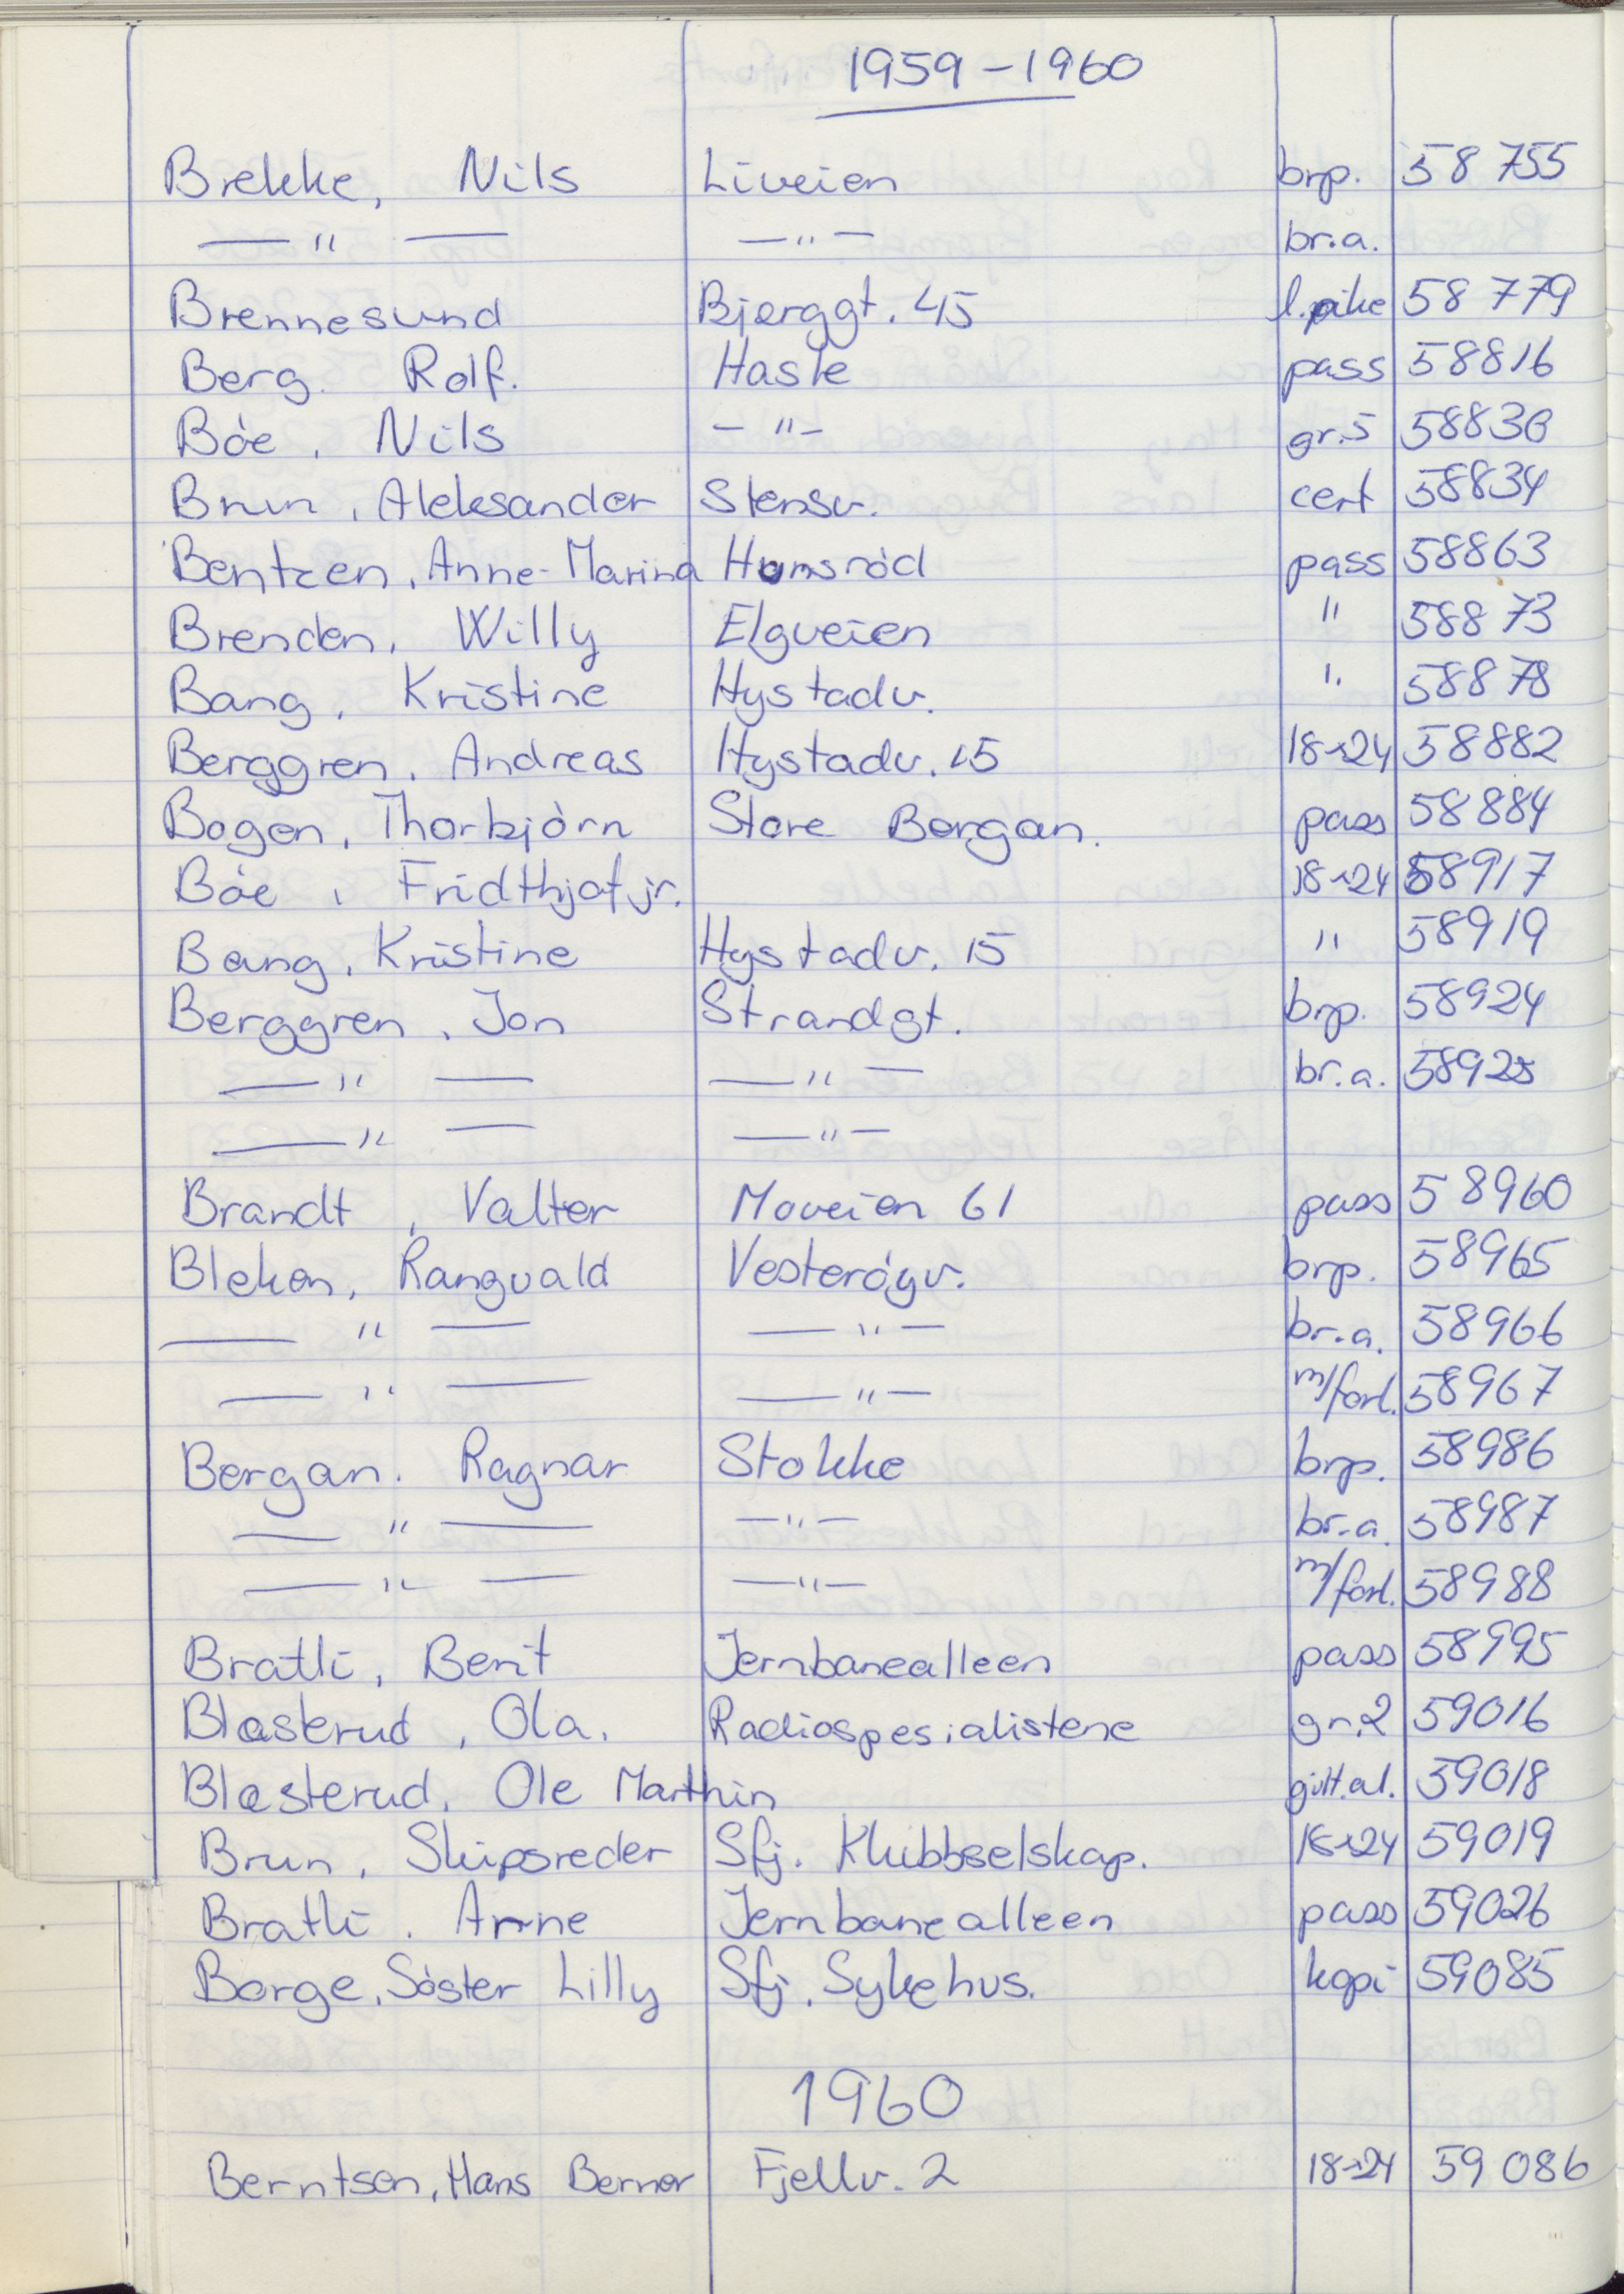 1959-1960
Brekke, Nils Liveien brp. 58 755
— " — — " — br.a.
Brennesund Bjerggt. 45 l.pike 58 779
Berg. Rolf. Hasle pass 58816
Bòe, Nils — " — gr.5 58830
Brun, Aleksander Stensv. cert 58834
Bentzen, Anne-Marina Hunsròd pass 58863
Brenden, Willy Elgveien " 58873
Bang, Kristine Hystadv. " 58878
Berggren, Andreas Hystadv. 15 18x24 58882
Bogen, Thorbjòrn Store Bergan. pass 58884
Bòe, Fridthjof jr. 18x24 58917
Bang, Kristine Hystadv. 15 " 58919
Berggren, Jon Strandgt. brp. 58924
— " — — " — br.a. 58925
— " — — " —
Brandt, Valter Moveien 61 pass 58960
Bleken, Rangvald Vesteròyv. brp. 58965
— " — — " — br.a. 58966
— " — — " — m/forl. 58967
Bergan. Ragnar Stokke brp. 58986
— " — — " — br.a. 58987
— " — — " — m/forl. 58988
Bratli, Berit Jernbanealleen pass 58995
Blasterud, Ola. Radiospesialistene gr.2 59016
Blasterud, Ole Marthin 59018
Brun, Skipsreder Sfj. Klubbselskap. 18x24 59019
Bratli. Arne Jernbanealleen pass 59026
Borge, Sòster Lilly Sfj. Sykehus. kopi 59085
1960
Berntsen, Hans Berner Fjellv. 2 18x24 59 086